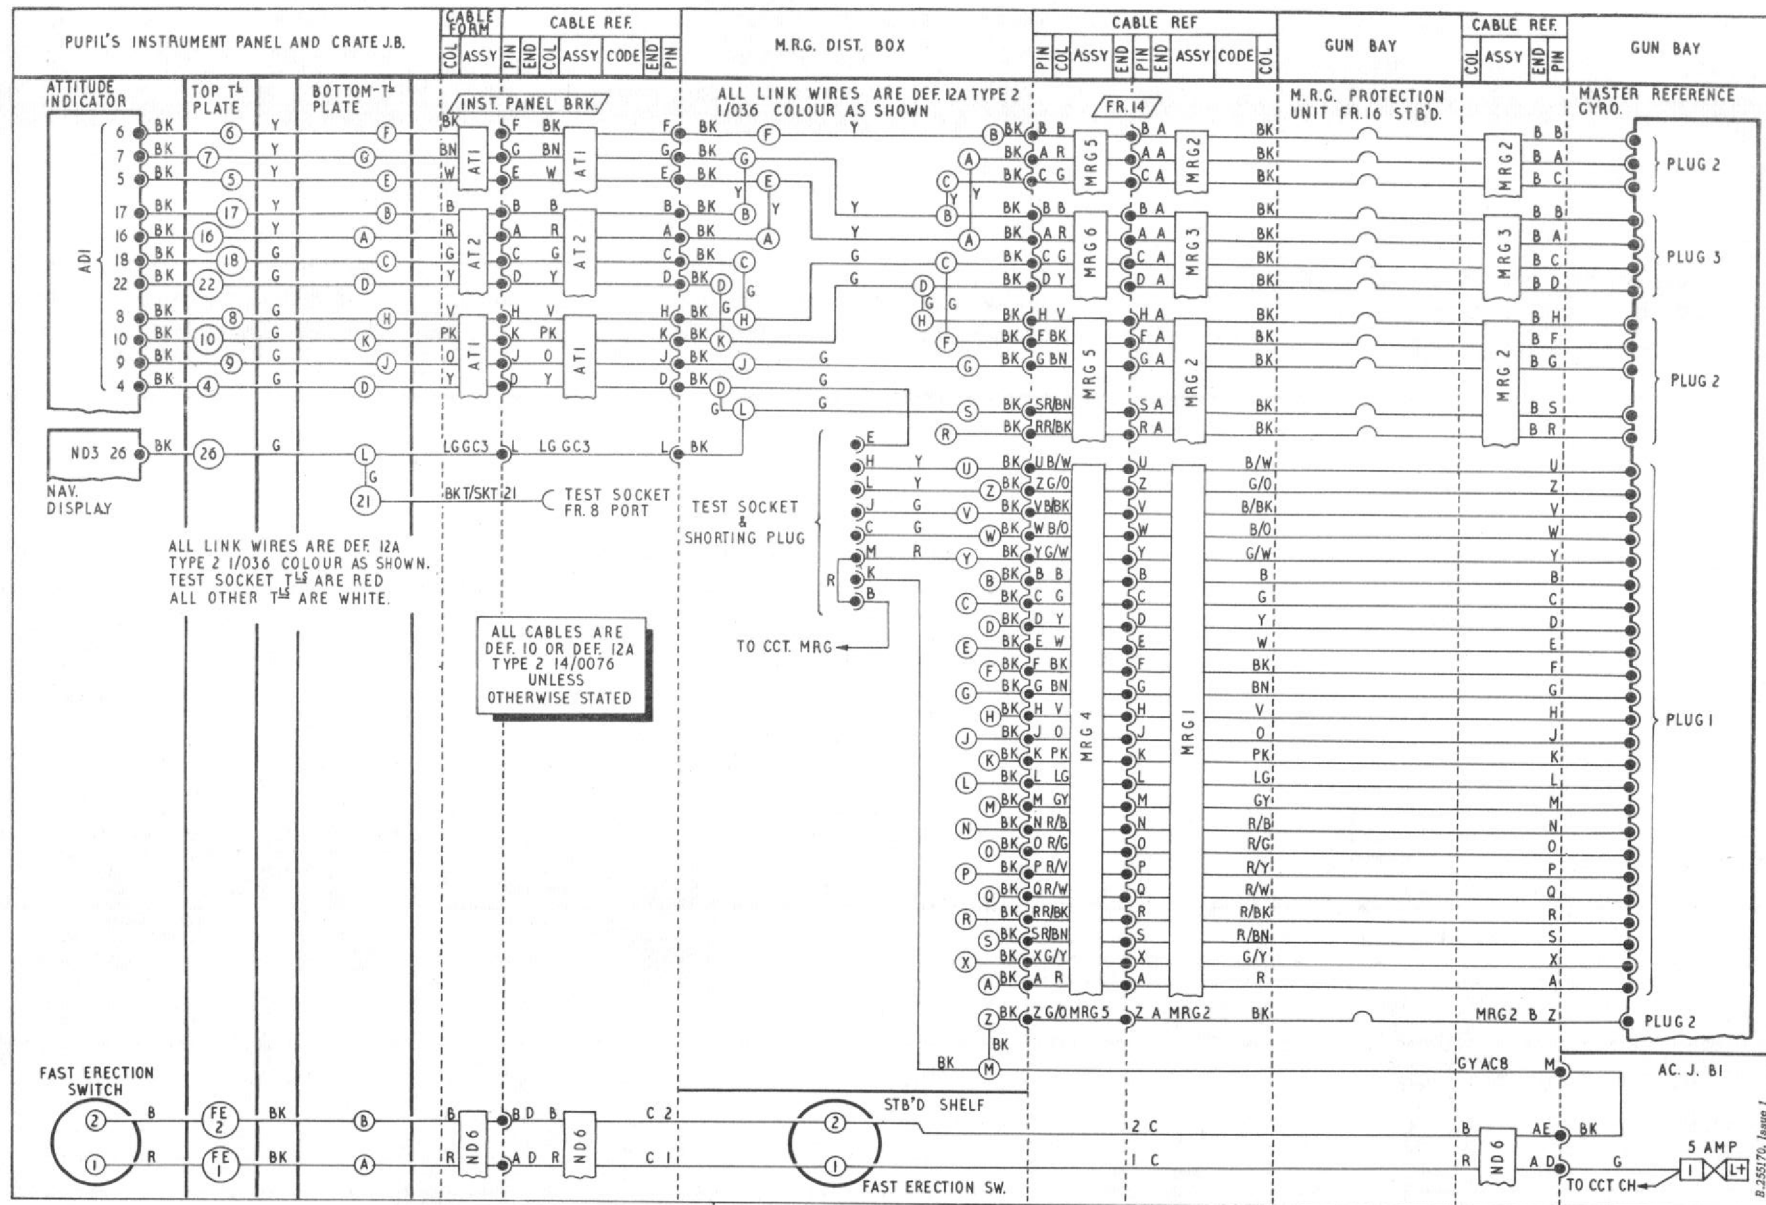 PUPIL'S INSTRUMENT PANEL AND CRATE J.B.
CABLE FORM
CABLE REF.
M.R.G. DIST. BOX
CABLE REF
GUN BAY
CABLE REF.
GUN BAY
COL ASSY PIN END COL ASSY CODE END PIN
PIN COL ASSY END PIN END ASSY CODE COL
COL ASSY END PIN
ATTITUDE INDICATOR
TOP TL PLATE
BOTTOM-TL PLATE
INST. PANEL BRK.
ALL LINK WIRES ARE DEF. 12A TYPE 2
1/036 COLOUR AS SHOWN
FR.14
M.R.G. PROTECTION
UNIT FR.16 STB'D.
MASTER REFERENCE
GYRO.
6 BK 6 Y F BK F BK F BK F Y B BK B B B A BK B B
7 BK 7 Y G BN G BN G BK G A BK A R A A BK B A
5 BK 5 Y E W E W E BK E C BK C G C A BK B C
AT1 AT1 MRG5 MRG2 MRG2 PLUG 2
17 BK 17 Y B B B B B BK B Y B BK B B B A BK B B
16 BK 16 Y A R A R A BK A Y A BK A R A A BK B A
18 BK 18 G C G C G C BK C G C BK C G C A BK B C
22 BK 22 G D Y D Y D BK D G D BK D Y D A BK B D
ADI AT2 AT2 MRG6 MRG3 MRG3 PLUG 3
8 BK 8 G H V H V H BK H H BK H V H A BK B H
10 BK 10 G K PK K PK K BK K F BK F BK F A BK B F
9 BK 9 G J O J O J BK J G G BK G BN G A BK B G
4 BK 4 G D Y D Y D BK D G
AT1 AT1 MRG5 MRG2 MRG2 PLUG 2
G L G S BK S R/BN S A BK B S
R BK R R/BK R A BK B R
ND3 26 BK 26 G L LG GC3 L LG GC3 L BK
NAV.
DISPLAY
G
21 BK T/SKT 21 TEST SOCKET
FR. 8 PORT
ALL LINK WIRES ARE DEF. 12A
TYPE 2 1/036 COLOUR AS SHOWN.
TEST SOCKET TLS ARE RED
ALL OTHER TLS ARE WHITE.
ALL CABLES ARE
DEF. 10 OR DEF. 12A
TYPE 2 14/0076
UNLESS
OTHERWISE STATED
TEST SOCKET
&
SHORTING PLUG
E
H Y U BK U B/W U B/W U
L Y Z BK Z G/O Z G/O Z
J G V BK V B/BK V B/BK V
C G W BK W B/O W B/O W
M R Y BK Y G/W Y G/W Y
R K
B
TO CCT. MRG
B BK B B B B B
C BK C G C G C
D BK D Y D Y D
E BK E W E W E
F BK F BK F BK F
G BK G BN G BN G
H BK H V H V H
J BK J O J O J
K BK K PK K PK K
L BK L LG L LG L
M BK M GY M GY M
N BK N R/B N R/B N
O BK O R/G O R/G O
P BK P R/V P R/Y P
Q BK Q R/W Q R/W Q
R BK R R/BK R R/BK R
S BK S R/BN S R/BN S
X BK X G/Y X G/Y X
A BK A R A R A
MRG 4 MRG 1 PLUG 1
Z BK Z G/O MRG5 Z A MRG2 BK MRG2 B Z PLUG 2
BK
BK M GY AC8 M
AC. J. B1
FAST ERECTION
SWITCH
STB'D SHELF
2 B FE 2 BK B B B D B C 2 2 2 C B AE BK
1 R FE 1 BK A R A D R C 1 1 1 C R A D G
ND6 ND6 ND6
FAST ERECTION SW.
5 AMP
1 L+
TO CCT CH
B.255170. Issue 1